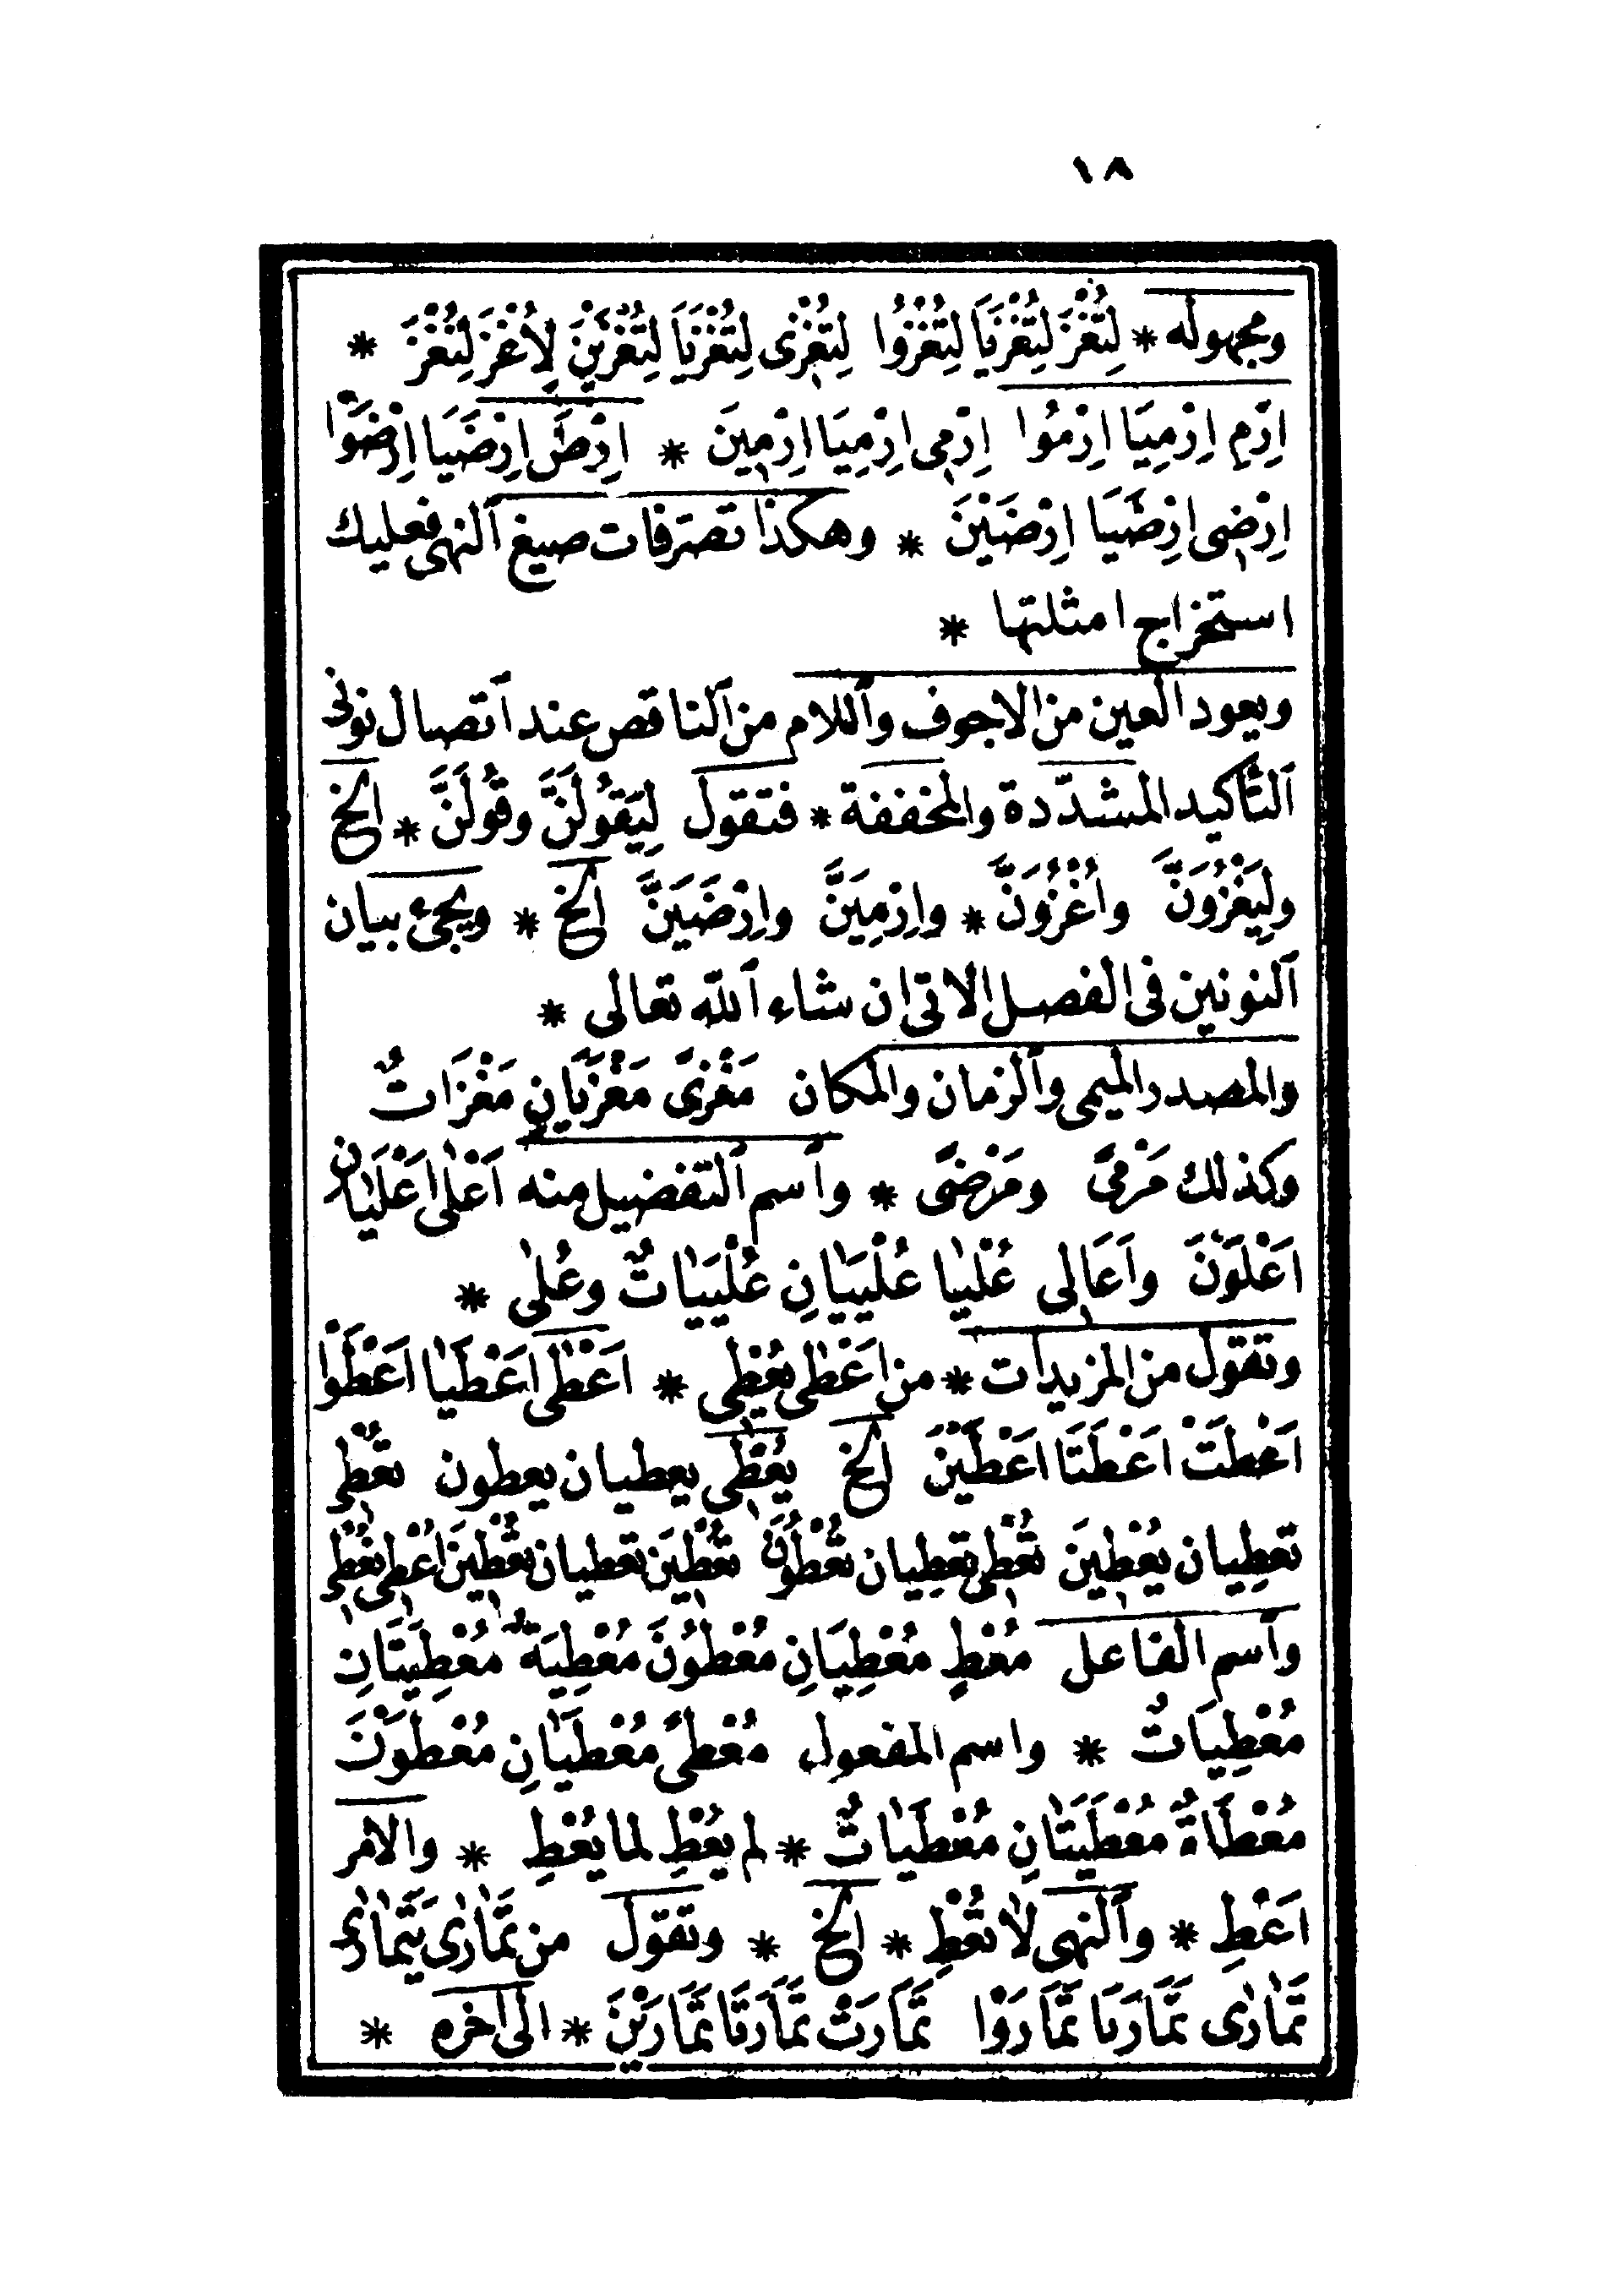 ١٨
ومجهوله * لِتُغْزَ لِتُغْزَيَا لِتُغْزَوْا لِتُغْزَى لِتُغْزَيَا لِتُغْزَيْنَ لِأُغْزَ لِنُغْزَ *
اِرْمِ اِرْمِيَا اِرْمُوا اِرْمِى اِرْمِيَا اِرْمِينَ * اِرْضَ اِرْضَيَا اِرْضَوْا
اِرْضَى اِرْضَيَا اِرْضَيْنَ * وهكذا تصرّفات صيغ ٱلنهى فعليك
استخراج امثلتها *
ويعود العين من الاجوف وٱللام من ٱلناقص عند ٱتصال نونى
ٱلتّأكيد المشدّدة والمخففة * فتقول لِيَقُولَنَّ وقُولَنَّ * الخ
ولِيَغْزُوَنَّ واُغْزُوَنَّ * واِرْمِيَنَّ واِرْضَيَنَّ الخ * ويجىء بيان
ٱلنونين فى الفصل الاتى ان شاء ٱللّه تعالى *
والمصدر الميمى وٱلزمان والمكان مَغْزًى مَغْزَيَانِ مَغْزَاتٌ
وكذلك مَرْمًى ومَرْضًى * وٱسم ٱلتّفضيل منه اَعْلٰى اَعْلَيٰانِ
اَعْلَوْنَ واَعَالِى عُلْيٰا عُلْيَيٰانِ عُلْيَيٰاتٌ وعُلٰى *
وتقول من المزيدات * من اَعْطٰى يُعْطِى * اَعْطٰى اَعْطَيٰا اَعْطَوْا
اَعْطَتْ اَعْطَتَا اَعْطَيْنَ الخ يُعْطِى يعطيان يعطون تُعْطِى
تعطِيان يُعْطِينَ تُعْطِى تعطِيان تُعْطُونَ تُعْطِينَ تعطيان تُعْطِينَ اُعْطِى نُعْطِى
وٱسم الفاعل مُعْطٍ مُعْطِيَانِ مُعْطُونَ مُعْطِيَةٌ مُعْطِيَتَانِ
مُعْطِيَاتٌ * واسم المفعول مُعْطًى مُعْطَيٰانِ مُعْطَوْنَ
مُعْطَاةٌ مُعْطَيَتٰانِ مُعْطَيٰاتٌ * لم يُعْطِ لما يُعْطِ * والامر
اَعْطِ * وٱلنهى لٰا تُعْطِ * الخ * وتقول من تَمٰارٰى يَتَمٰارٰى
تَمٰارٰى تَمَارَيَا تَمَارَوْا تَمَارَتْ تَمَارَتَا تَمَارَيْنَ * الى اخره *